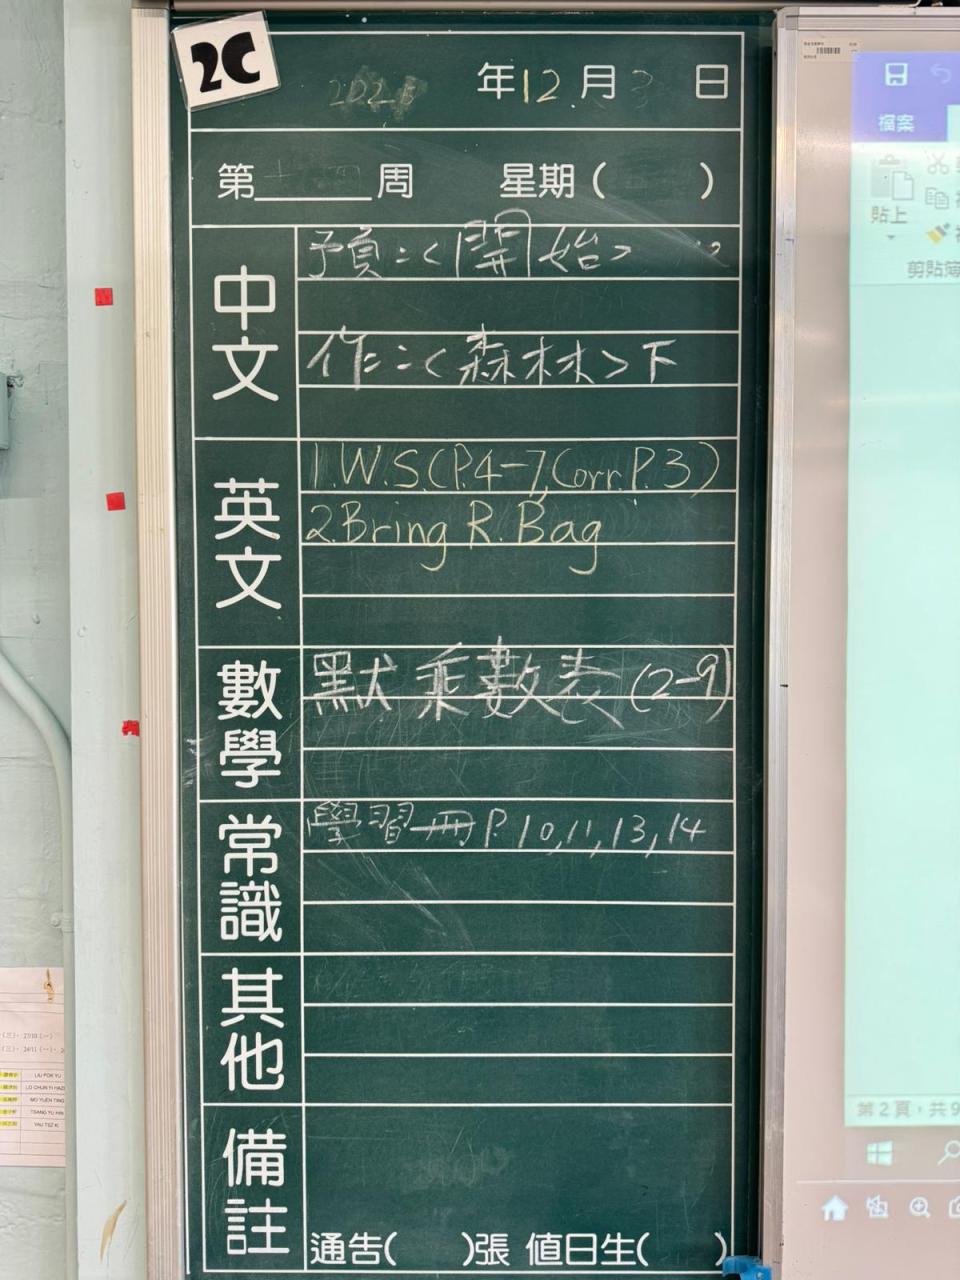 2C
年12月 日
第 周 星期( )
中文
預:<開始>
作:<森林>下
英文
1.W.S.(P.4-7,Corr.P.3)
2.Bring R.Bag
數學
默 乘數表(2-9)
常識
學習冊P.10,11,13,14
其他
備註
通告( )張 值日生( )
檔案
貼上
剪貼簿
第2頁,共9
LIU POK YU
LO CHUN YI HAZ
MO YUEN TING
TSANG YU HIN
YAU TSZ KI